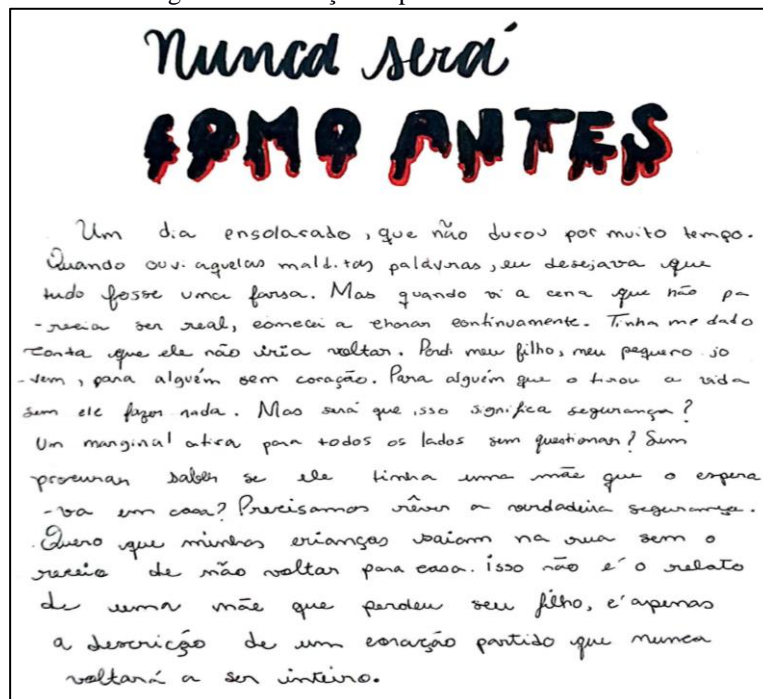 Nunca será
COMO ANTES
Um dia ensolarado, que não durou por muito tempo.
Quando ouvi aquelas malditas palavras, eu desejava que
tudo fosse uma farsa. Mas quando vi a cena que não pa
-recia ser real, comecei a chorar continuamente. Tinha me dado
conta que ele não iria voltar. Perdi meu filho, meu pequeno jo
-vem, para alguém sem coração. Para alguém que o tirou a vida
sem ele fazer nada. Mas será que isso significa segurança?
Um marginal atira para todos os lados sem questionar? Sem
procurar saber se ele tinha uma mãe que o espera
-va em casa? Precisamos rêver a verdadeira segurança.
Quero que minhas crianças saiam na rua sem o
receio de não voltar para casa. isso não é o relato
de uma mãe que perdeu seu filho, é apenas
a descrição de um coração partido que nunca
voltará a ser inteiro.